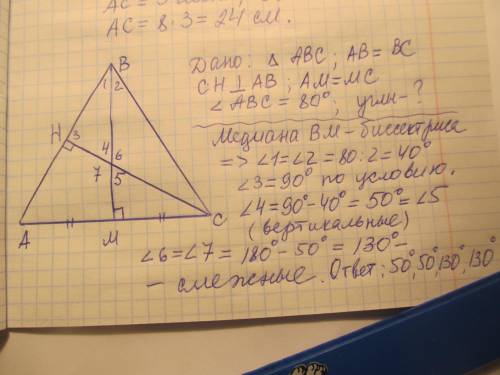 AC = 8·3 = 24 см.
Дано: △ ABC; AB = BC
CH ⊥ AB; AM = MC
∠ABC = 80°; углы - ?
Медиана BM - биссектриса
=> ∠1 = ∠2 = 80:2 = 40°
∠3 = 90° по условию.
∠4 = 90° - 40° = 50° = ∠5
(вертикальные)
∠6 = ∠7 = 180° - 50° = 130° -
- смежные. Ответ: 50°, 50°, 130°, 130°
B
1 2
H 3
4 6
7 5
A
M
C